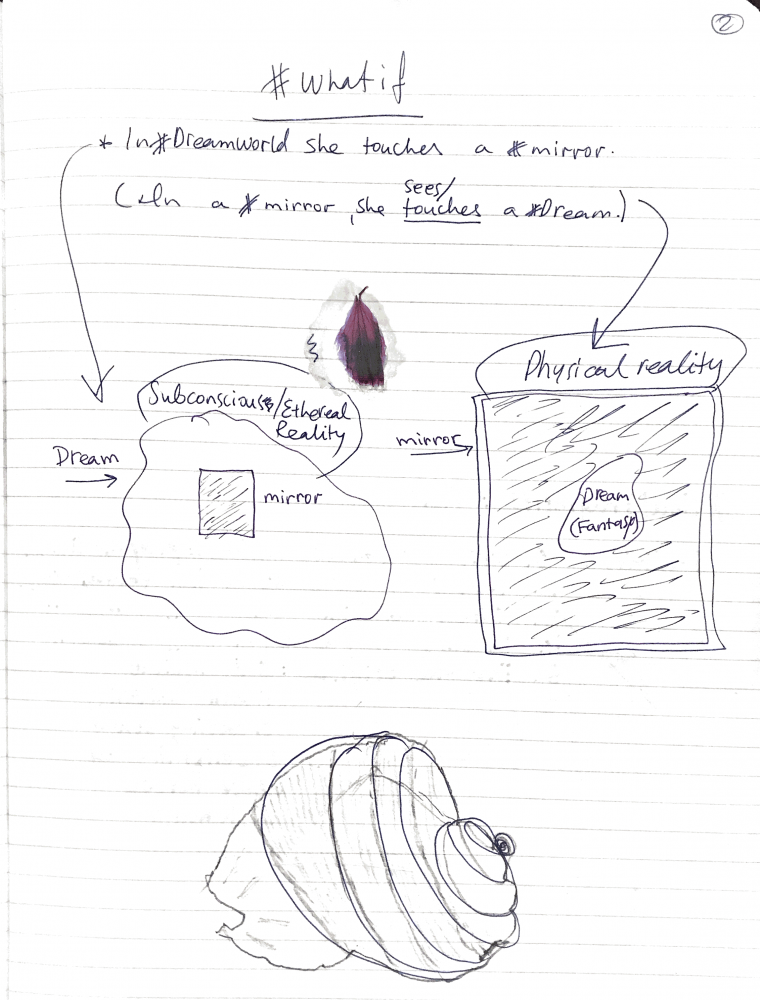 2
#whatif
* In #Dreamworld she touches a #mirror.
(*In a #mirror, she sees/touches a #Dream.)
Physical reality
Subconscious/Ethereal
Reality
Dream
mirror
mirror
Dream
(Fantasy)